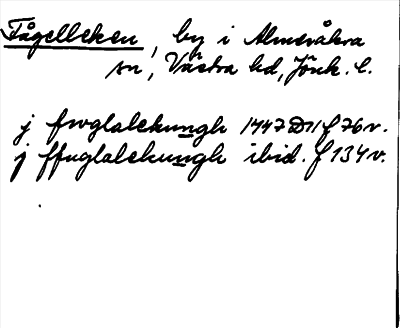 Fågelleken, by i Almesåkra
sn, Västra hd, Jönk. l.
j fwglalekungh 1447 D11 f 76 v.
j ffuglalekungh ibid. f 134 v.